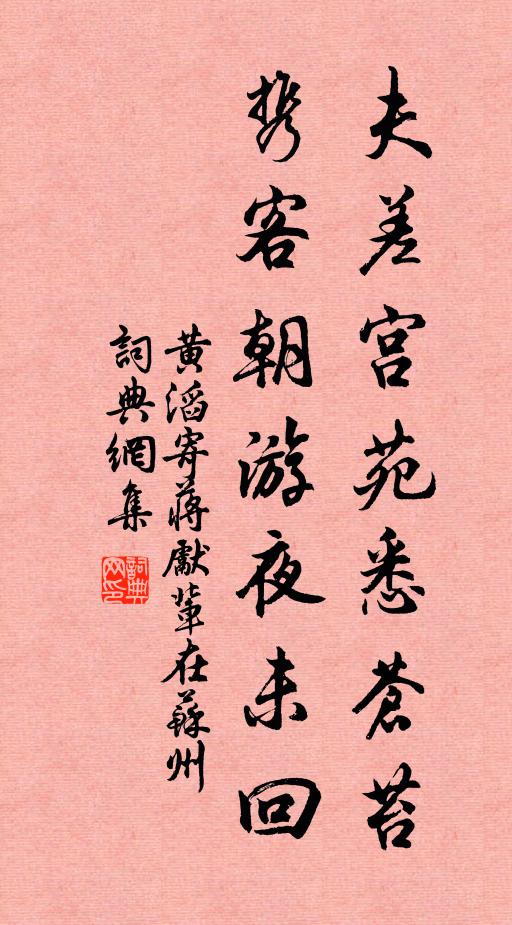 夫差宫苑悉苍苔
携客朝游夜未回
黄滔寄蒋獻輩在蘇州
詞典網集
詞典网印